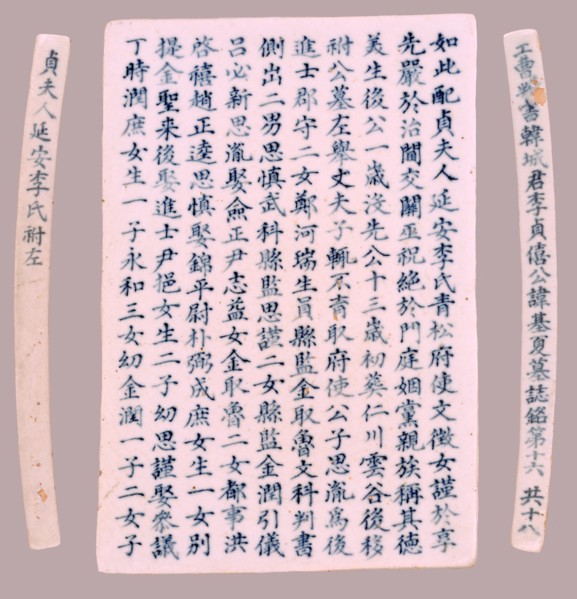 工曹判書韓城君李貞僖公諱基夏墓誌銘第十六 共十八
如此配貞夫人延安李氏青松府使文徵女謹於享
先嚴於治閫交關巫祝絶於門庭姻黨親族稱其德
美生後公一歲沒先公十三歲初葬仁川雲谷後移
祔公墓左舉丈夫子輒不育取府使公子思胤爲後
進士郡守二女鄭河瑞生員縣監金取魯文科判書
側出二男思慎武科縣監思謹二女縣監金潤引儀
呂必新思胤娶僉正尹志益女金取魯二女都事洪
啓禧趙正逵思慎娶錦平尉朴弼成庶女生一女別
提金聖来後娶進士尹挹女生二子幼思謹娶叅議
丁時潤庶女生一子永和三女幼金潤一子二女子
貞夫人延安李氏祔左